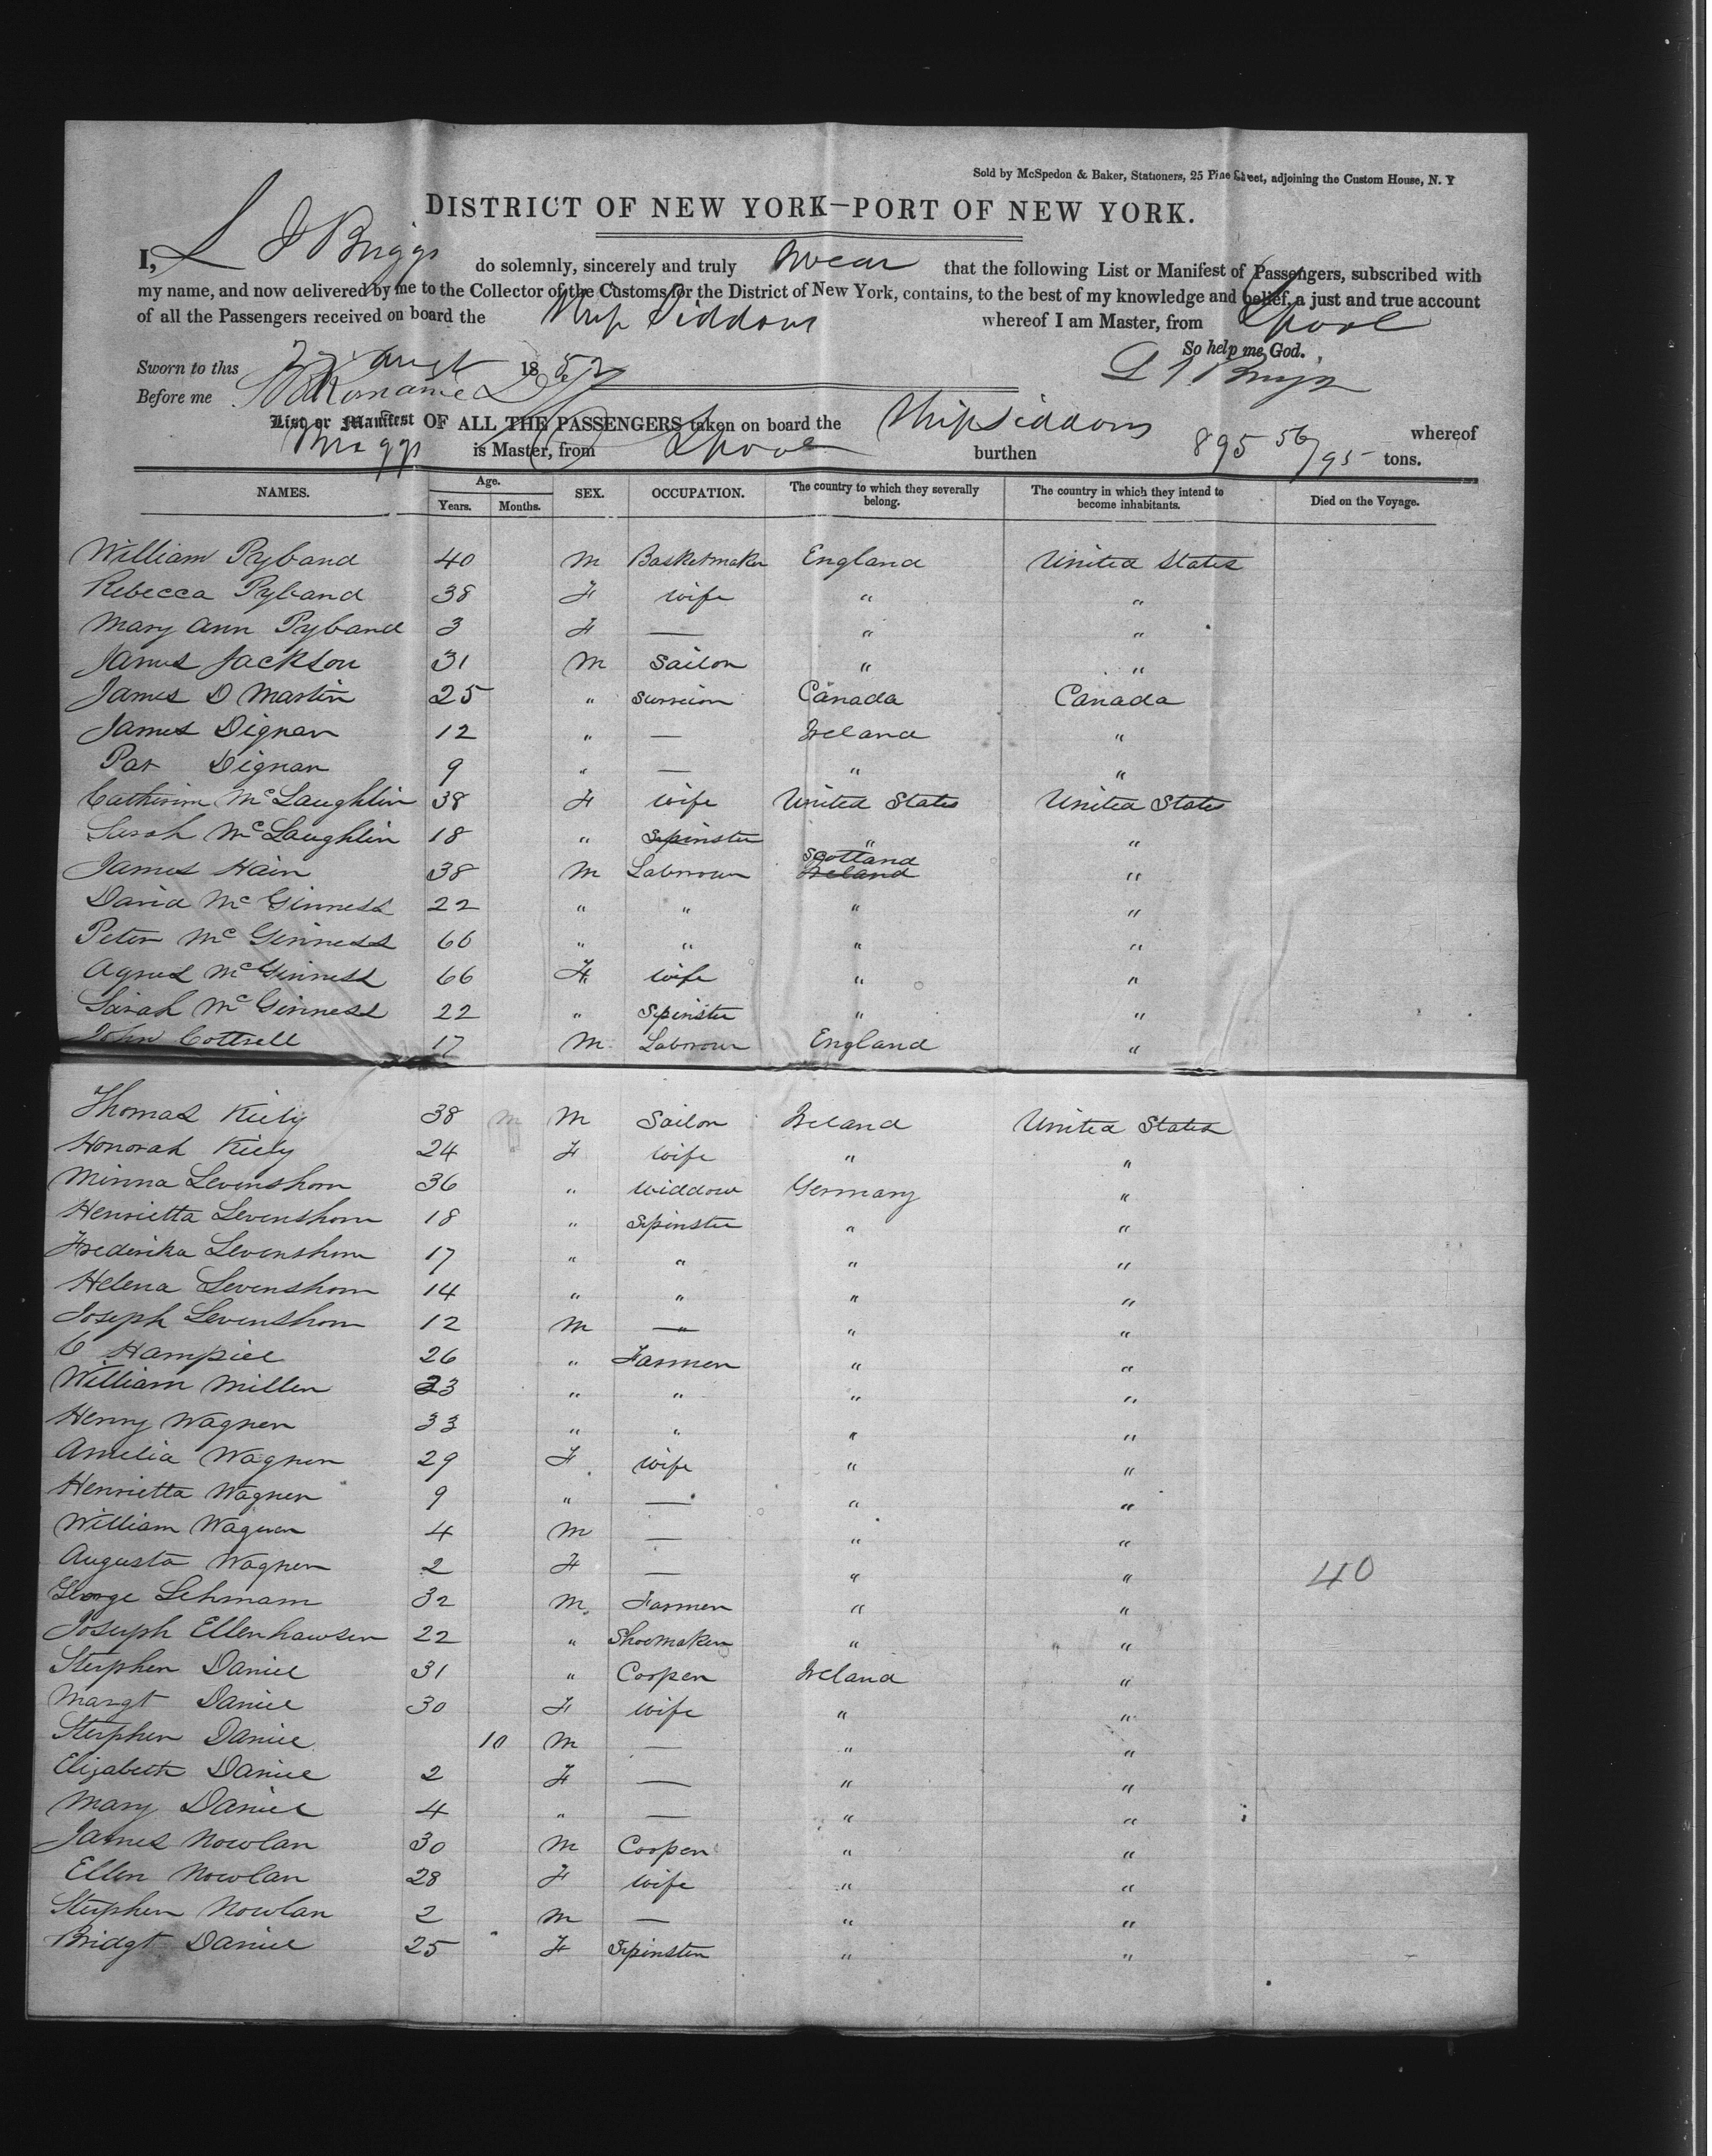 Sold by McSpedon & Baker, Stationers, 25 Pine Street, adjoining the Custom House, N. Y
DISTRICT OF NEW YORK—PORT OF NEW YORK.
I, L J Briggs do solemnly, sincerely and truly swear that the following List or Manifest of Passengers, subscribed with
my name, and now delivered by me to the Collector of the Customs for the District of New York, contains, to the best of my knowledge and belief, a just and true account
of all the Passengers received on board the Ship Siddons whereof I am Master, from Lpool
So help me God.
Sworn to this 27 1852 L J Briggs
Before me
List or Manifest OF ALL THE PASSENGERS taken on board the Ship Siddons whereof
Briggs is Master, from Lpool burthen 895 56/95 tons.
NAMES. Age. Years. Months. SEX. OCCUPATION. The country to which they severally belong. The country in which they intend to become inhabitants. Died on the Voyage.
William Pyband 40 M Basketmaker England United States
Rebecca Pyband 38 F wife " "
Mary Ann Pyband 3 F — " "
James Jackson 31 M Sailor " "
James D Martin 25 " Canada Canada
James Dignan 12 " — Ireland "
Pat Dignan 9 " — " "
Catherine McLaughlin 38 F wife United States United States
Sarah McLaughlin 18 " Spinster " "
James Hain 38 M Labrour Scotland Ireland "
David McGinness 22 " " " "
Peter McGinness 60 " " " "
Agnes McGinness 66 F wife " "
Sarah McGinness 22 " Spinster " "
John Cottrell 17 M Labrour England "
Thomas Kiely 38 M Sailor Ireland United States
Honorah Kiely 24 F wife " "
Minna Levenshorn 36 " Widdow Germany "
Henrietta Levenshorn 18 " Spinster " "
Frederika Levenshorn 17 " " " "
Helena Levenshorn 14 " " " "
Joseph Levenshorn 12 M — " "
C Hampiel 26 " Farmer " "
William Miller 23 " " " "
Henry Wagner 33 " " " "
Amelia Wagner 29 F wife " "
Henrietta Wagner 9 " — " "
William Wagner 4 M — " "
Augusta Wagner 2 F — " " 40
George Lehmam 32 M Farmer " "
Joseph Ellenhawsen 22 " Shoemaker " "
Stephen Daniel 31 " Cooper Ireland "
Margt Daniel 30 F wife " "
Stephen Daniel 10 M — " "
Elizabeth Daniel 2 F — " "
Mary Daniel 4 " — " "
James Nowlan 30 M Cooper " "
Ellen Nowlan 28 F wife " "
Stephen Nowlan 2 M — " "
Bridgt Daniel 25 F Spinster " "